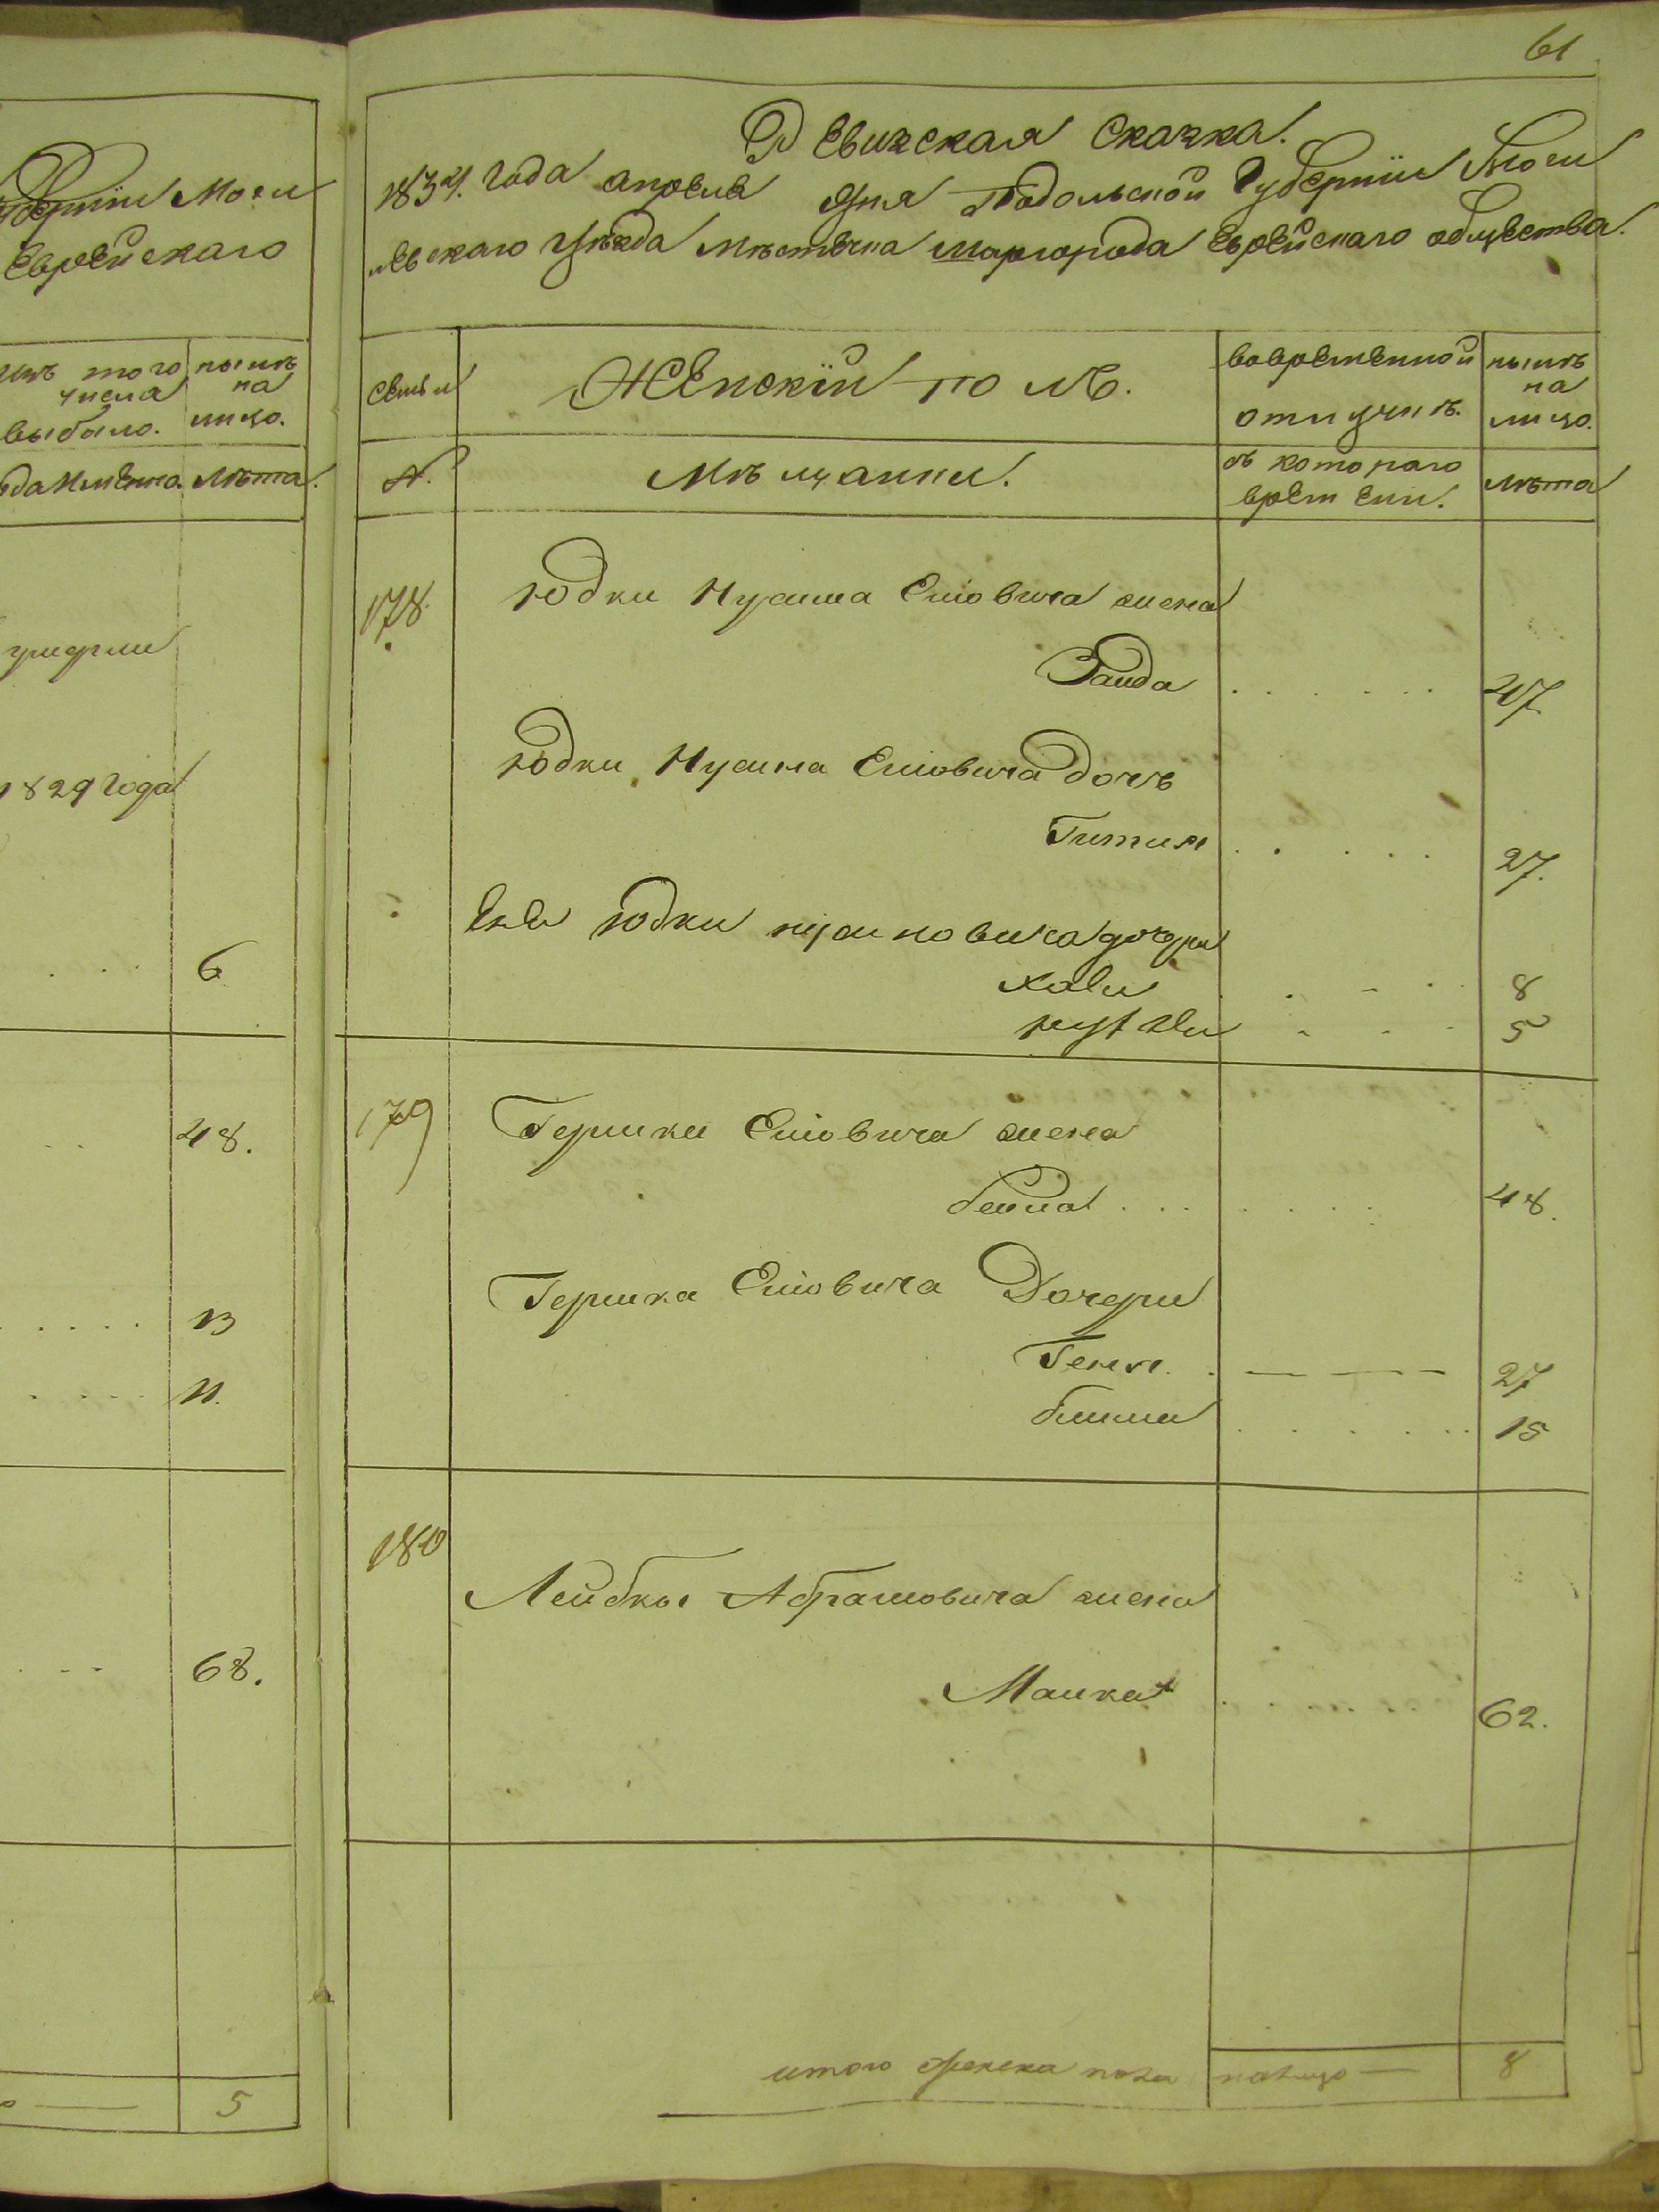 губерніи Моги
Еврейскаго
изъ того числа выбыло.
нынѣ на лицо.
Лѣта.
умерли
1829 года
6
48.
13
11.
68.
5
61
Ревизская сказка.
1834. года апреля дня Подольской Губерніи Моги
левскаго уѣзда мѣстечка шаргорода Еврейскаго общества.
семьи
Женскій полъ.
во временной отлучкѣ.
нынѣ на лицо.
№.
Мѣщанки.
съ котораго времени.
лѣта
178.
Юдки Нусима Еиовича жена
Заида 47
Юдки Нусина Еиовича дочь
Гитля 27.
Юдки нусиновича дочери
хаи 8
5
179
Гершки Еиовича жена
бейла 48.
Гершка Еиовича Дочери
Геня 27
блима 15
180
Лейбки Абрамовича жена
Малка 62.
итого женска пола на лицо — 8